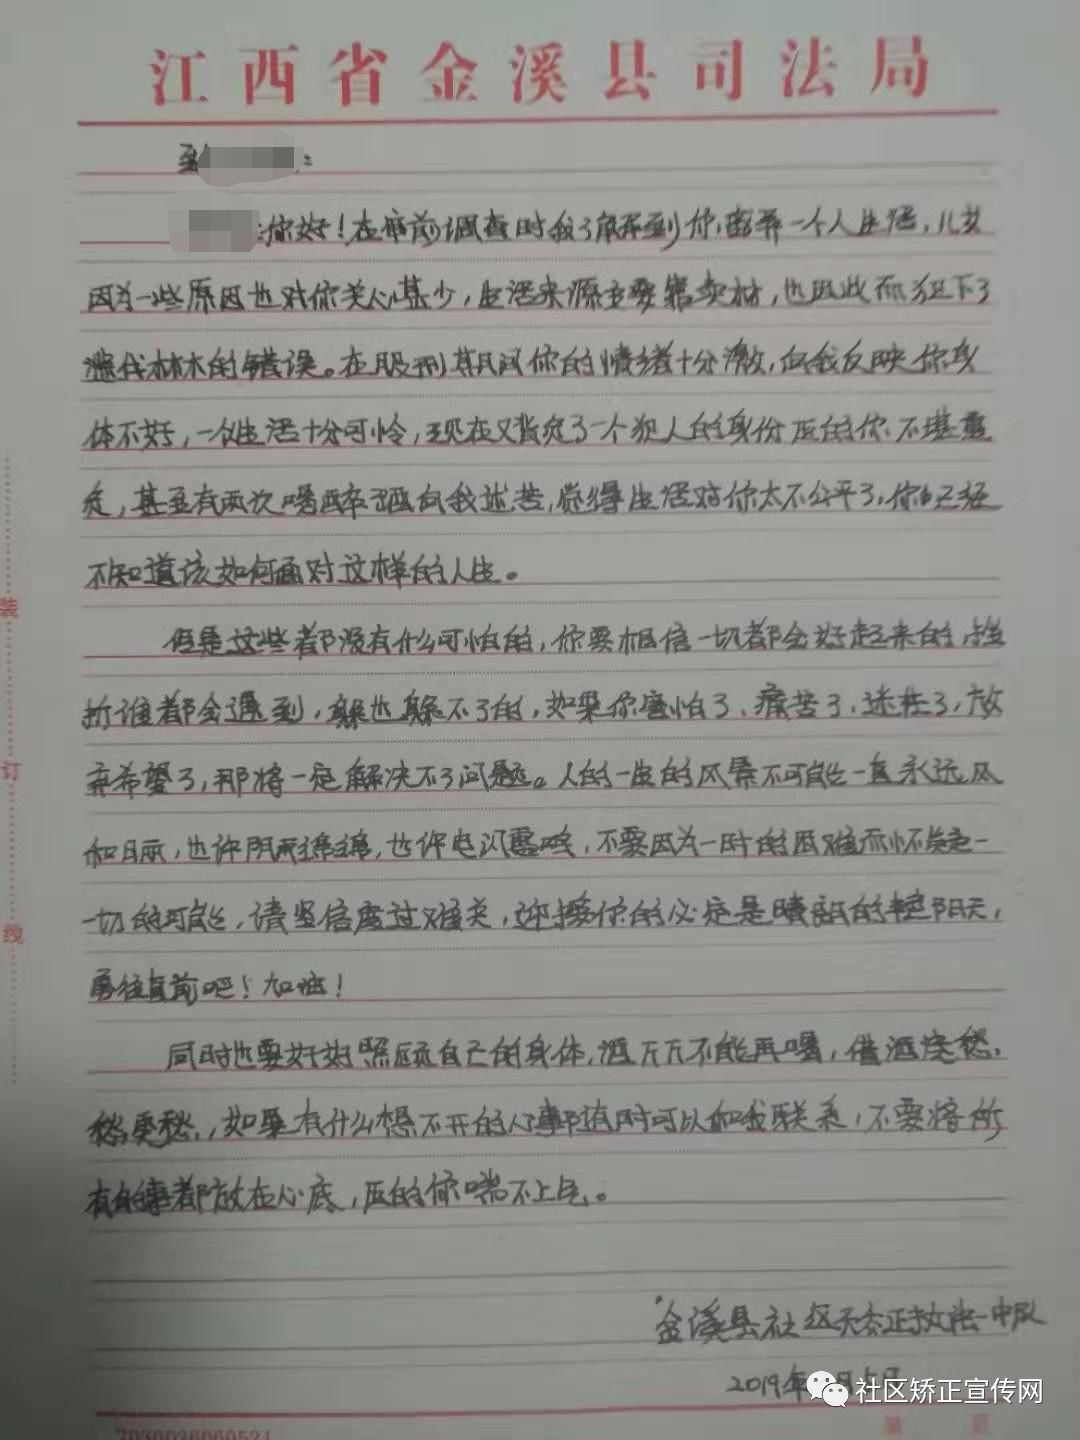 江西省金溪县司法局
致
你好!在庭前调查时我了解到你离异一个人生活,儿女
因为一些原因也对你关心甚少,生活来源主要靠卖材,也因此而犯下了
滥伐林木的错误。在服刑期间你的情绪十分激,向我反映你身
体不好,一人生活十分可怜,现在又背负了一个犯人的身份压的你不堪重
负,甚至有两次喝醉了酒向我述苦,觉得生活对你太不公平了,你已经
不知道该如何面对这样的人生。
但是这些都没有什么可怕的,你要相信一切都会好起来的,挫
折谁都会遇到,躲也躲不了的,如果你害怕了、痛苦了,迷茫了,放
弃希望了,那将一定解决不了问题。人的一生的风景不可能一直永远风
和日丽,也许阴雨绵绵,也许电闪雷鸣,不要因为一时的困难而怀疑一
切的可能,请坚信度过难关,迎接你的必定是晴朗的艳阳天,
勇往直前吧!加油!
同时也要好好照顾自己的身体,酒万万不能再喝,借酒浇愁,
愁更愁,如果有什么想不开的心事随时可以和我联系,不要将所
有的事都放在心底,压的你喘不上气。
金溪县社区矫正执法一中队
2019年 月 日
社区矫正宣传网
装
订
线
7030026060521
第 页